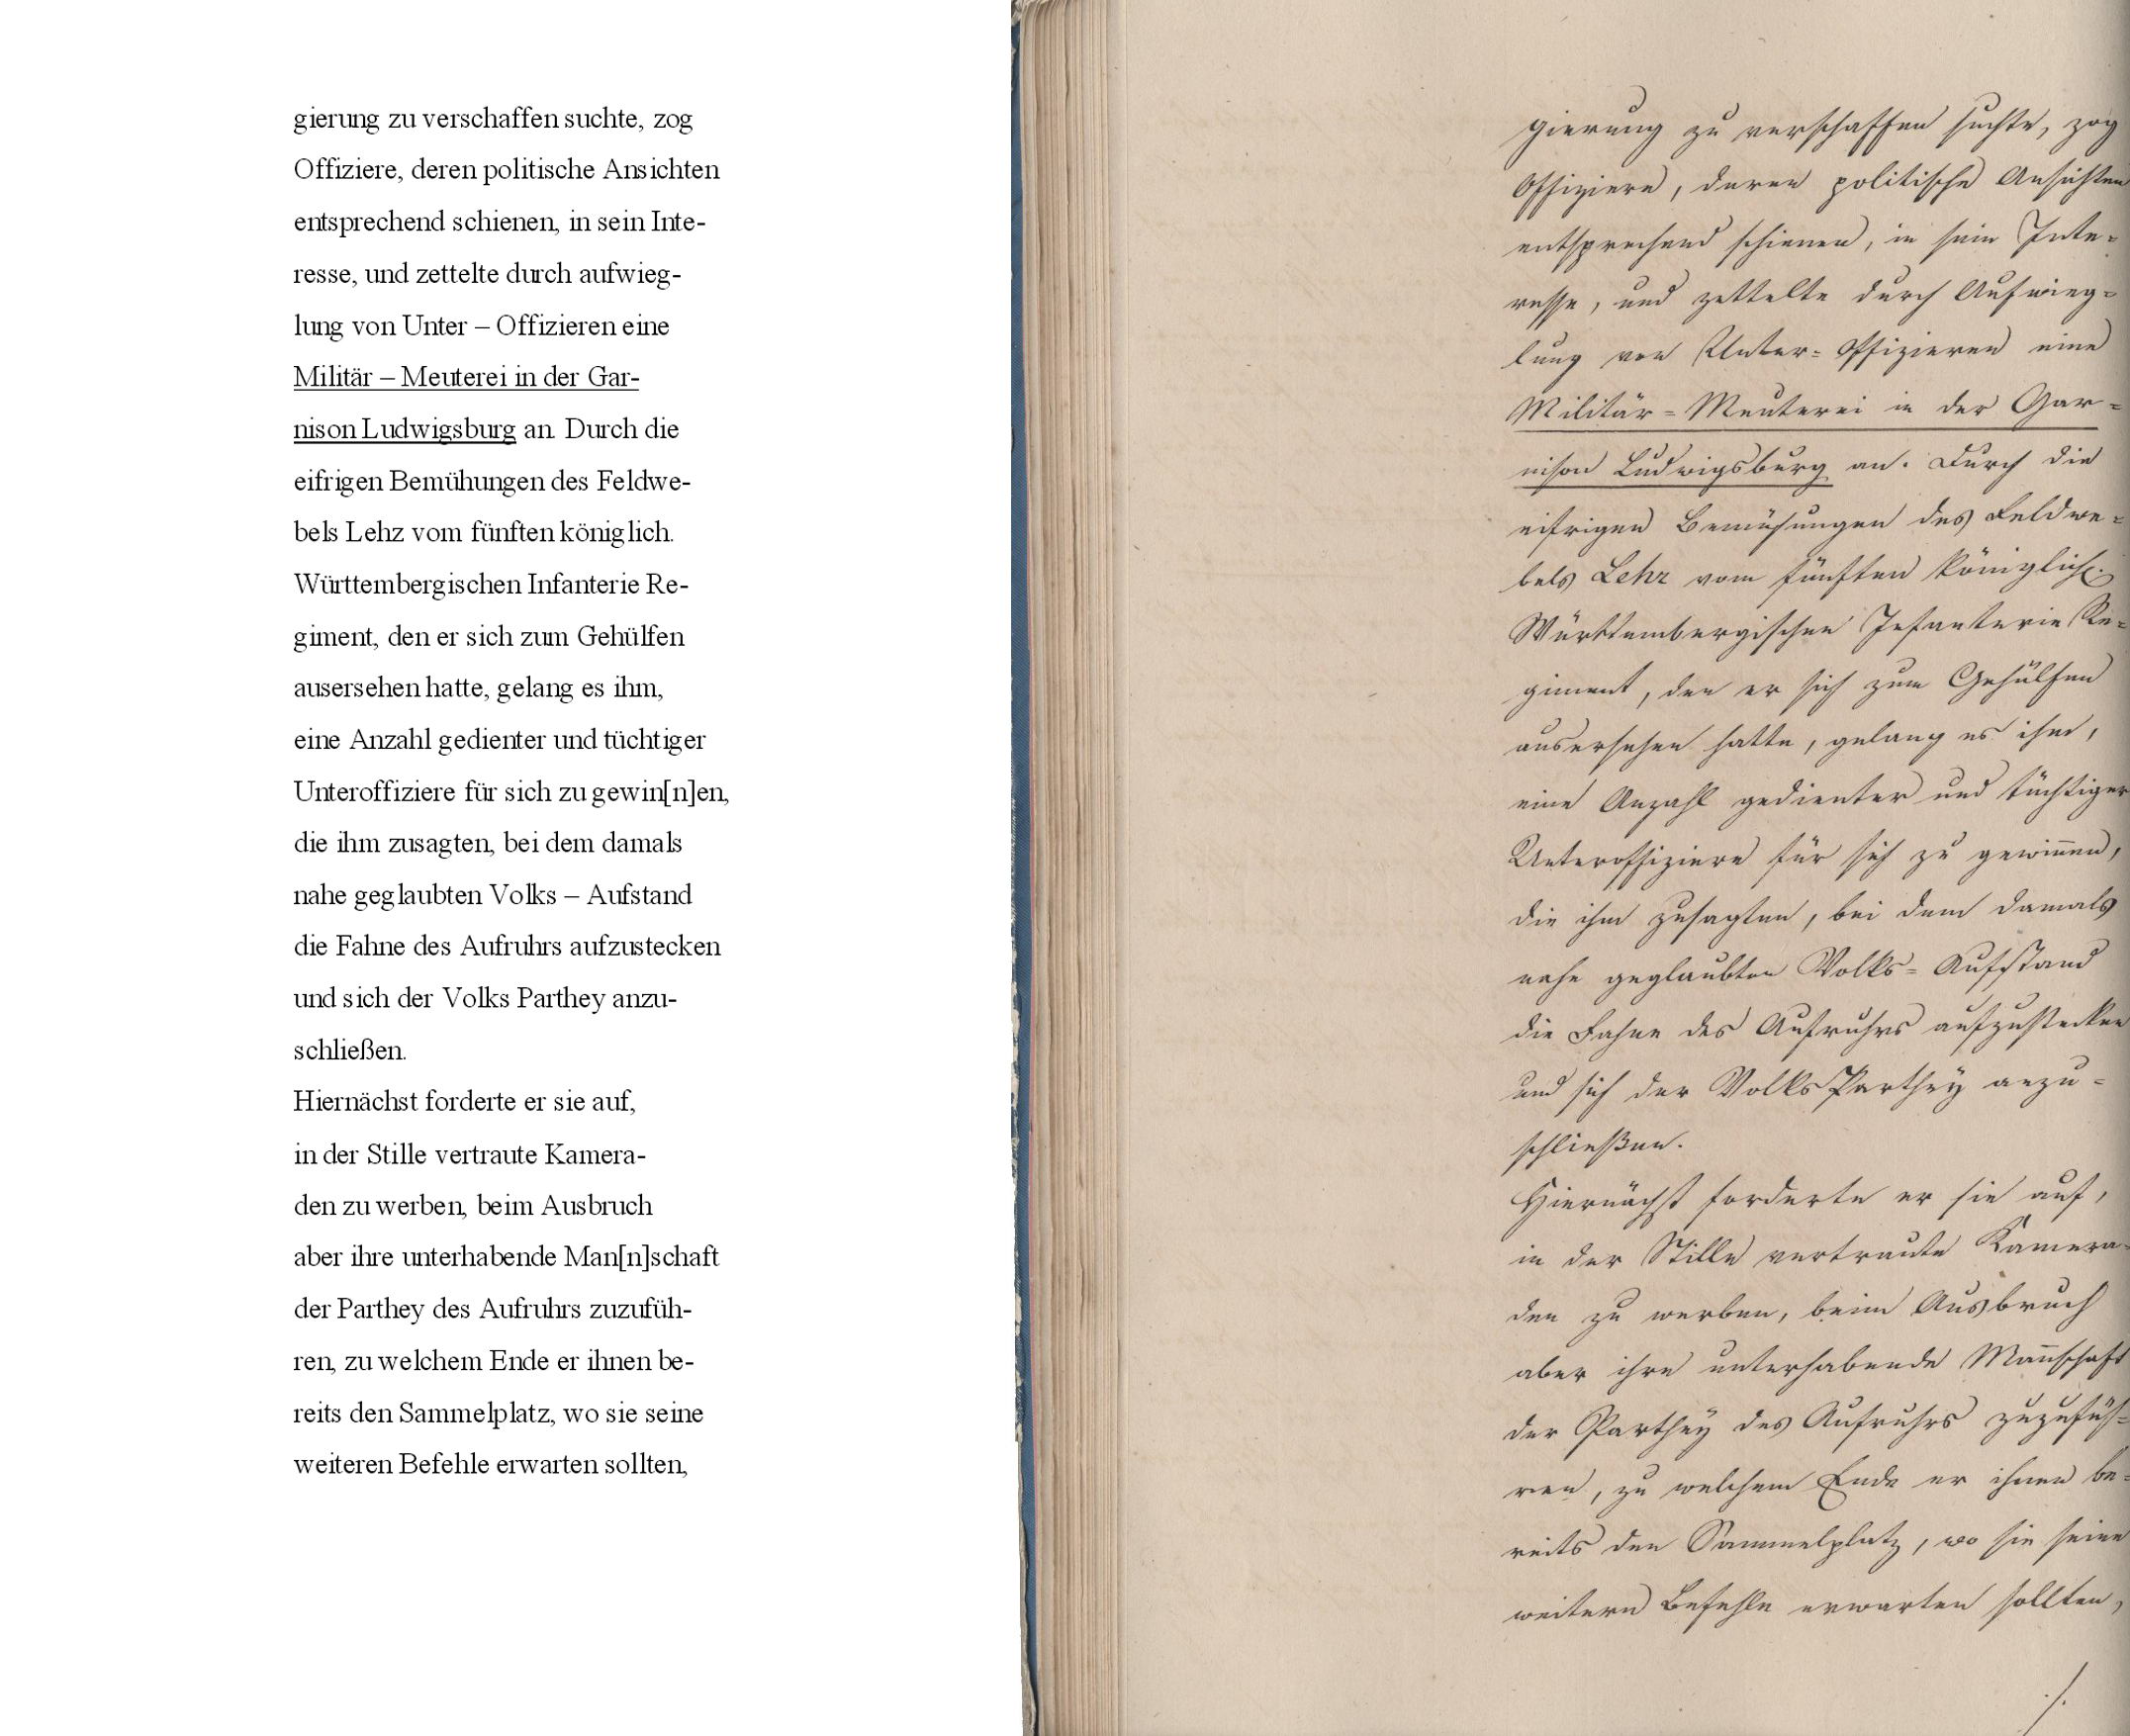 gierung zu verschaffen suchte, zog
Offiziere, deren politische Ansichten
entsprechend schienen, in sein Inte-
resse, und zettelte durch aufwieg-
lung von Unter – Offizieren eine
Militär – Meuterei in der Gar-
nison Ludwigsburg an. Durch die
eifrigen Bemühungen des Feldwe-
bels Lehz vom fünften königlich.
Württembergischen Infanterie Re-
giment, den er sich zum Gehülfen
ausersehen hatte, gelang es ihm,
eine Anzahl gedienter und tüchtiger
Unteroffiziere für sich zu gewin[n]en,
die ihm zusagten, bei dem damals
nahe geglaubten Volks – Aufstand
die Fahne des Aufruhrs aufzustecken
und sich der Volks Parthey anzu-
schließen.
Hiernächst forderte er sie auf,
in der Stille vertraute Kamera-
den zu werben, beim Ausbruch
aber ihre unterhabende Man[n]schaft
der Parthey des Aufruhrs zuzufüh-
ren, zu welchem Ende er ihnen be-
reits den Sammelplatz, wo sie seine
weiteren Befehle erwarten sollten,
gierung zu verschaffen suchte, zog
Offiziere, deren politische Ansichten
entsprechend schienen, in sein Inte=
resse, und zettelte durch Aufwieg=
lung von Unter=Offizieren eine
Militär=Meuterei in der Gar=
nison Ludwigsburg an. Durch die
eifrigen Bemühungen des Feldwe=
bels Lehr vom fünften königlich.
Württembergischen Infanterie Re=
giment, den er sich zum Gehülfen
ausersehen hatte, gelang es ihm,
eine Anzahl gedienter und tüchtiger
Unteroffiziere für sich zu gewin̄en,
die ihm zusagten, bei dem damals
nahe geglaubten Volks=Aufstand
die Fahne des Aufruhrs aufzustecken
und sich der Volks Parthey anzu=
schließen.
Hiernächst forderte er sie auf,
in der Stille vertraute Kamera=
den zu werben, beim Ausbruch
aber ihre unterhabende Man̄schaft
der Parthey des Aufruhrs zuzufüh=
ren, zu welchem Ende er ihnen be=
reits den Sammelplatz, wo sie seine
weitern Befehle erwarten sollten,
./.